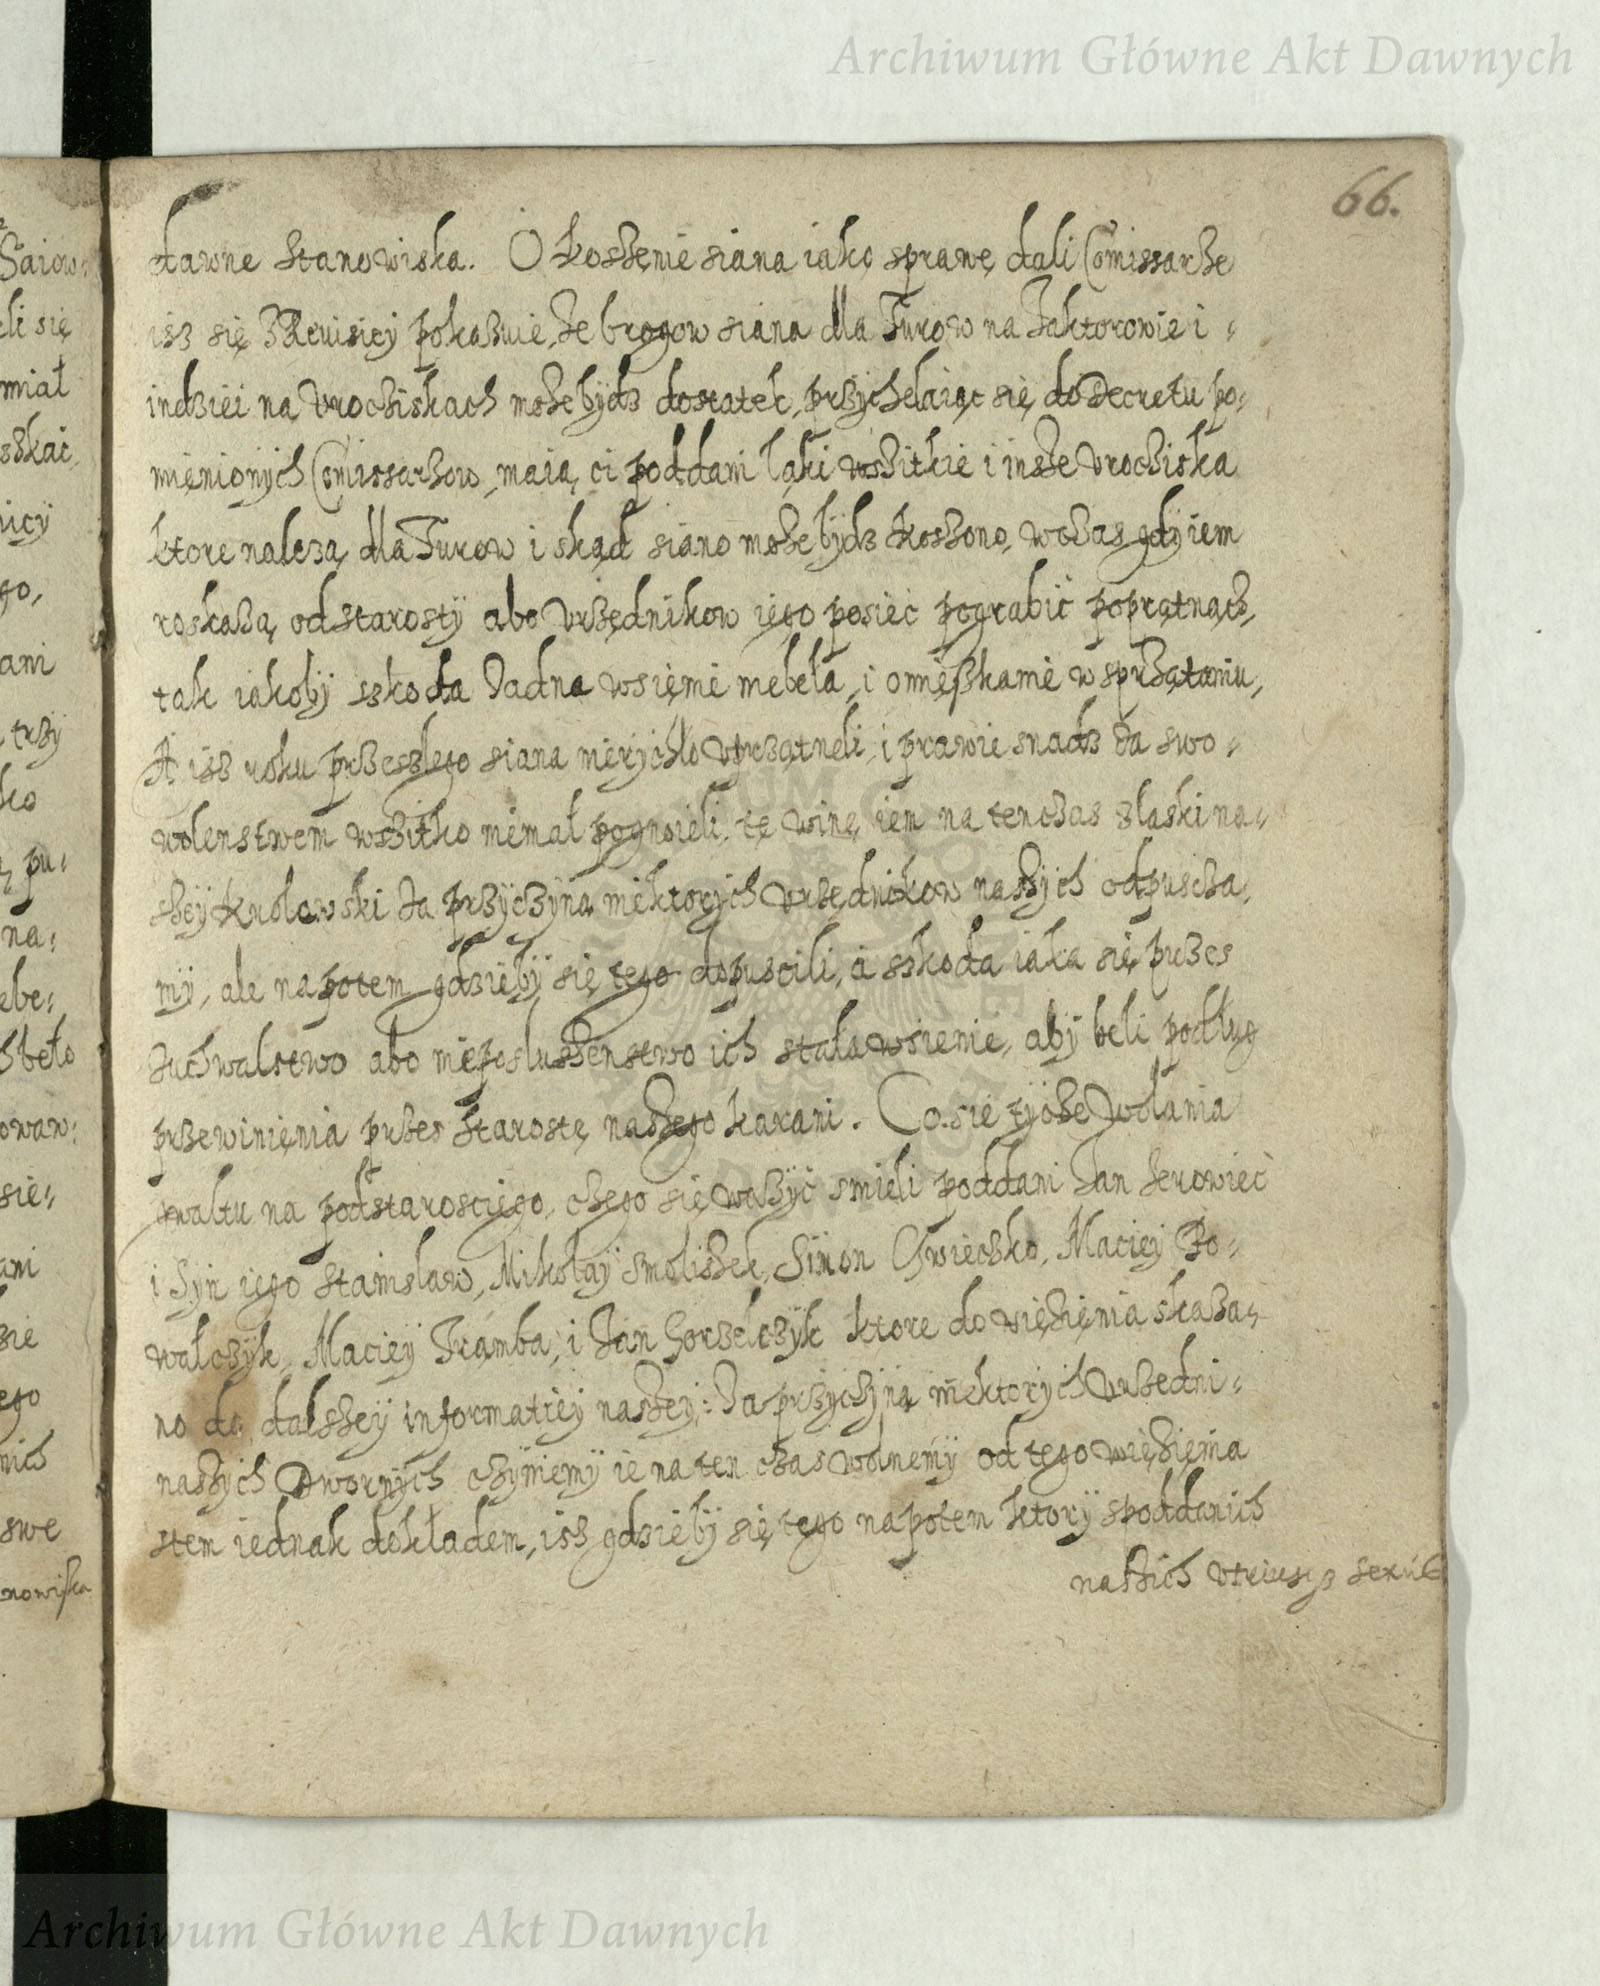 Archiwum Główne Akt Dawnych
66.
dawne stanowiska. O koszenie siana iako sprawę dali Comissarze
isz się z Rewisiey pokazuie, ze brogow siana dla Turow na Jaktorowie i
indziei na vrociskach moze bydz dostatek, przychelaiąc się do decretu po=
mięnionych Comissarzow, maią ci poddani łąki wszitkie i insze vrocziska
ktore nalezą dla Turow i skąd siano moze bydz koszono, w czas gdy iem
roskazą od starosty abo vrzędnikow iego posiec pograbic poprątnąc,
tak iakoby szkoda zadna w sięnie nie beła, i omięszkanie w sprzątaniu,
A isz roku przeszlego siana nierychło vprzątneli, i prawie snadz za swo=
wolenstwem wszitko niemal pognoieli, tę winę iem na ten czas z laski na=
szey krolowski za przyczyną niektorych vrzędnikow naszych odpuscza=
my, ale na potem gdzieby się tego dopuscili, a szkoda iaka się przes
zuchwalstwo abo nieposluszenstwo ich stala w sienie, aby beli podług
przewinięnia przes starostę naszego karani. Co się tycze wołania
gwaltu na podstarosciego, czego się wazyc smieli poddani Jan
i syn iego Stanislaw, Mikołay Smoliszek, Simon Cwieczko, Maciey Ko=
walczyk, Maciey Trąmba, i Jan Gorzelczyk ktore do więzięnia skaza=
no do dalszey informatiey naszey: za przyczyną niektorych vrzedni=
naszych dwornych czyniemy ie na ten czas wolnemy od tego więzięnia
s tem iednak dokładem, isz gdzieby się tego na potem ktory s poddanich
naszich vtriusq3 sexus
Archiwum Główne Akt Dawnych